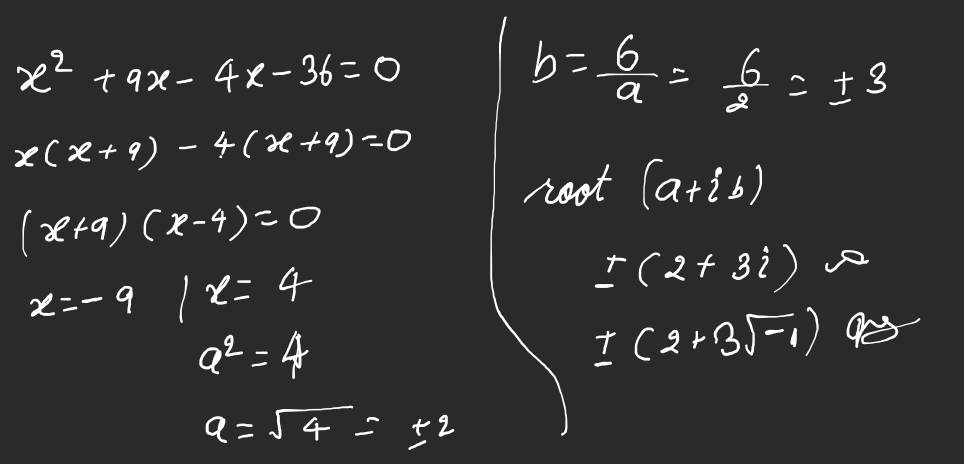 x² + 9x - 4x - 36 = 0
x(x+9) - 4(x+9) = 0
(x+9) (x-4) = 0
x = -9 | x = 4
a² = 4
a = √4 = ±2
b = 6/a = 6/2 = ±3
root (a+ib)
±(2+3i)
±(2+3√-1)